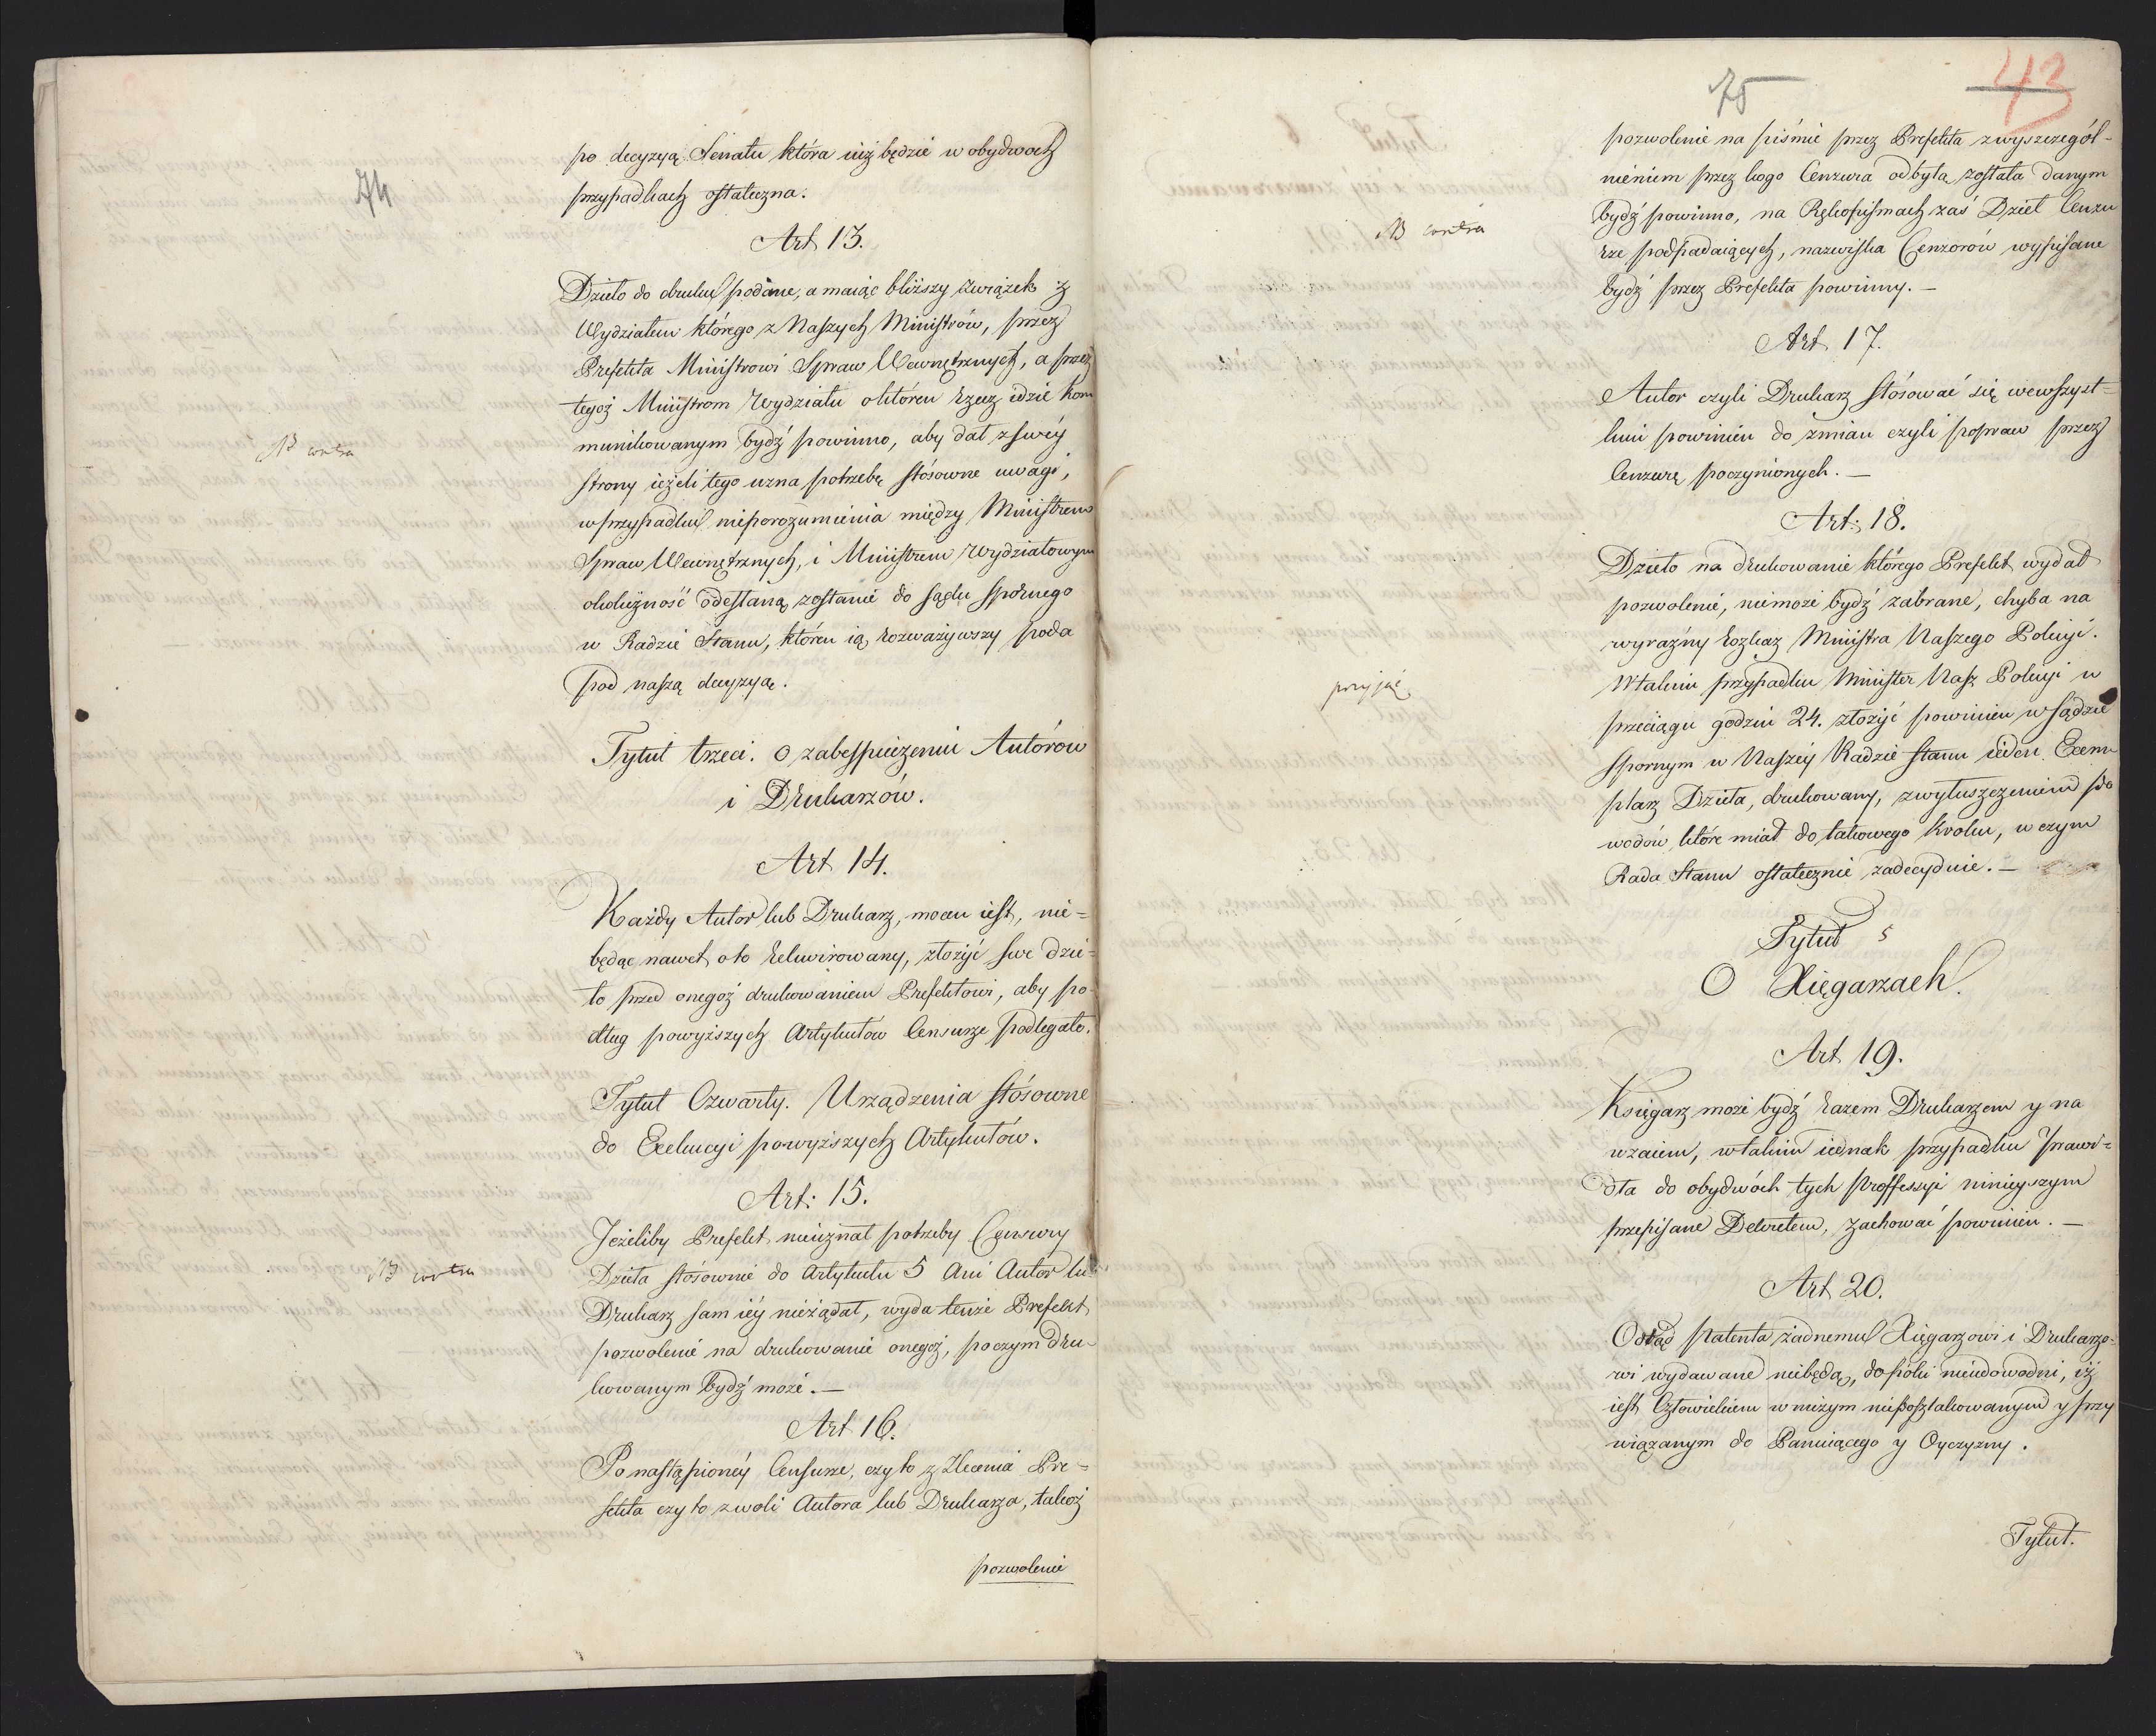 74
po decyzyą Senatu która iuż będzie w obydwoch
przypadkach ostateczna.
Art 13.
Dzieło do druku podane, a maiąc bliższy związek z
Wydziałem którego z Naszych Ministrów, przez
Prefekta Ministrowi Spraw Wewnętrznych, a przez
tegoż Ministrom Wydziału októren rzecz idzie kom
munikowanym bydź powinno, aby dał z swéy
NB contra
strony ieżeli tego uzna potrzebę stósowne uwagi,
w przypadku nieporozumienia między Ministrem
Spraw Wewnętrznych, i Ministrem Wydziałowym
okoliczność odesłaną zostanie do sądu spornego
w Radzie Stanu, któren ią rozważywszy poda
pod naszą decyzyą.
Tytuł trzeci. o zabespieczeniu Autórow
i Drukarzów.
Art 14.
Każdy Autor lub Drukarz, mocen iest, nie=
będąc nawet oto rekwirowany, złożyć swe dzie=
ło przed onegoż drukowaniem Prefektowi, aby po
dług powyższych Artykułów Censurze podlegało.
Tytuł Czwarty. Urządzenia stósowne
do Exekucyi powyższych Artykułów.
Art: 15.
Jeżeliby Prefekt nieuznał potrzeby Censury
NB contra
Dzieła stósownie do Artykułu 5 Ani Autor lub
Drukarz sam iéy nieżądał, wyda tenże Prefekt
pozwolenie na drukowanie onegoż, poczym dru-
kowanym bydź może. —
Art 16.
Po nastąpionéy Censurze, czy to z Zlecenia Pre=
fekta czy to z woli Autora lub Drukarza, takoż
pozwolenie
75
43
pozwolenie na piśmie przez Prefekta z wyszczegól-
nieniem przez kogo Cenzura odbyta została danym
bydź powinno, na Rękopismach zaś Dzieł Cenzu
NB contra
rze podpadaiących, nazwiska Cenzorów wypisane
bydź przez Prefekta powinny. —
Art 17.
Autor czyli Drukarz stósować się wewszyst=
kim powinien do zmian czyli popraw przez
Cenzurę poczynionych. —
Art: 18.
Dzieło na drukowanie którego Prefekt wydał
pozwolenie, niemoże bydź zabrane, chyba na
wyraźny rozkaz Ministra Naszego Policyi.
W takim przypadku Minister Nasz Policyi w
przyjąć
przeciągu godzin 24. złożyć powinien w Sądzie
spornym w Naszéy Radzie Stanu ieden Exem
plarz Dzieła, drukowany, z wytuszczeniem po
wodów które miał do takowego kroku, w czym
Rada Stanu ostatecznie zadecyduie. —
Tytuł 5
O Xięgarzach.
Art 19.
Księgarz może bydź razem Drukarzem y na
wzaiem, w takim iednak przypadku prawi=
dła do obydwóch tych Proffessyi ninieyszym
przepisane Dekretem, zachować powinien. —
Art 20.
Odtąd patenta żadnemu Xięgarzowi i Drukarzo-
wi wydawane niebędą, dopóki nieudowodni, iż
iest Człowiekiem w niczym nieposzlakowanym y przy
wiązanym do Panuiącego y Oyczyzny.
Tytuł.